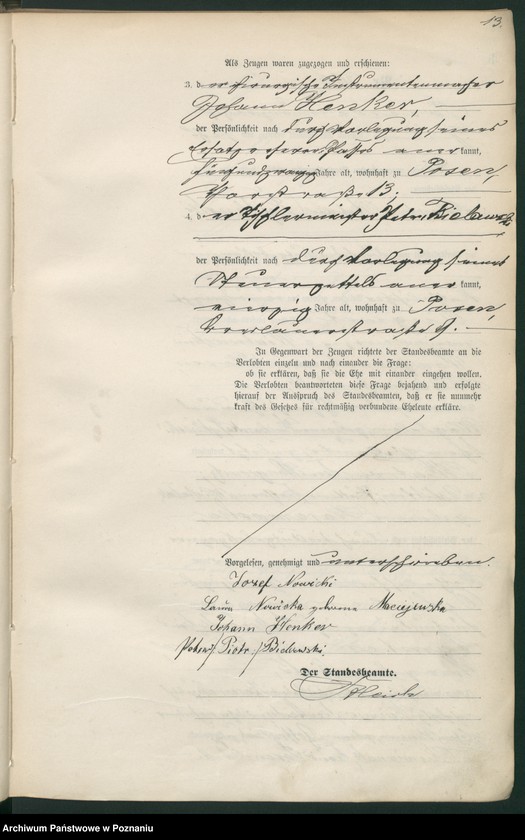 13.
Als Zeugen waren zugezogen und erschienen:
3. der chirurgische Instrumentenmacher
Johann Henker,
der Persönlichkeit nach durch Vorlegung seines
Passes anerkannt,
Jahre alt, wohnhaft zu Posen,
straße 13;
4. der Tischlermeister Peter Bielawski
der Persönlichkeit nach durch Vorlegung seines
Steuerzettels anerkannt,
vierzig Jahre alt, wohnhaft zu Posen,
Breslauerstraße 9.
In Gegenwart der Zeugen richtete der Standesbeamte an die
Verlobten einzeln und nach einander die Frage:
ob sie erklären, daß sie die Ehe mit einander eingehen wollen.
Die Verlobten beantworteten diese Frage bejahend und erfolgte
hierauf der Ausspruch des Standesbeamten, daß er sie nunmehr
kraft des Gesetzes für rechtmäßig verbundene Eheleute erkläre.
Vorgelesen, genehmigt und unterschrieben.
Jozef Nowicki
Nowicka geborene Maciejewska
Johann Henker
Piotr Bielawski.
Der Standesbeamte.
Archiwum Państwowe w Poznaniu